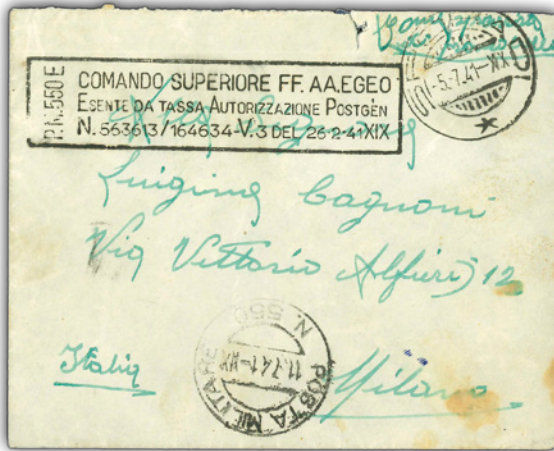 P.N. 550 E
COMANDO SUPERIORE FF. AA. EGEO
ESENTE DA TASSA AUTORIZZAZIONE POSTGÈN
N. 563613/164634-V. 3 DEL 26-2-41 XIX
-5.7.41-XIX
Luigina Cagnoni
Via Vittorio Alfieri, 12
Italia
Milano
POSTA MILITARE
N. 550
11.7.41-XIX